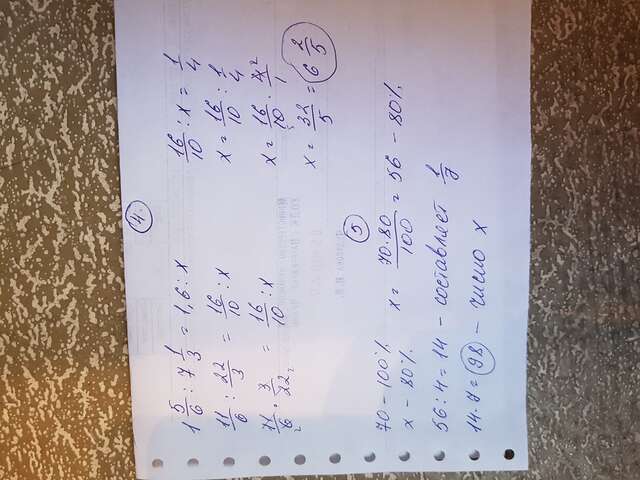 4.
1 5/6 : 7 1/3 = 1,6 : x
11/6 : 22/3 = 16/10 : x
11/6 · 3/22 = 16/10 : x
16/10 : x = 1/4
x = 16/10 : 1/4
x = 16/10 · 4/1
x = 32/5 = 6 2/5
5
70 - 100%
x - 80%. x = 70·80/100 = 56 - 80%.
56 : 4 = 14 - составляет 1/7
14·7 = 98 - число x